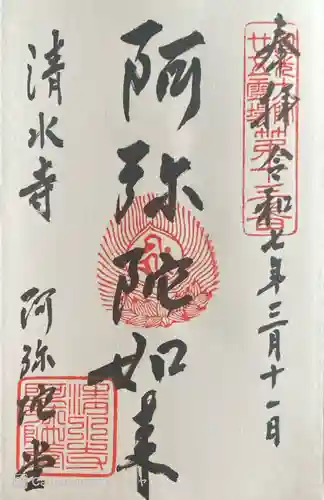 奉拝 令和七年三月十一日
阿弥陀如来
清水寺 阿弥陀堂